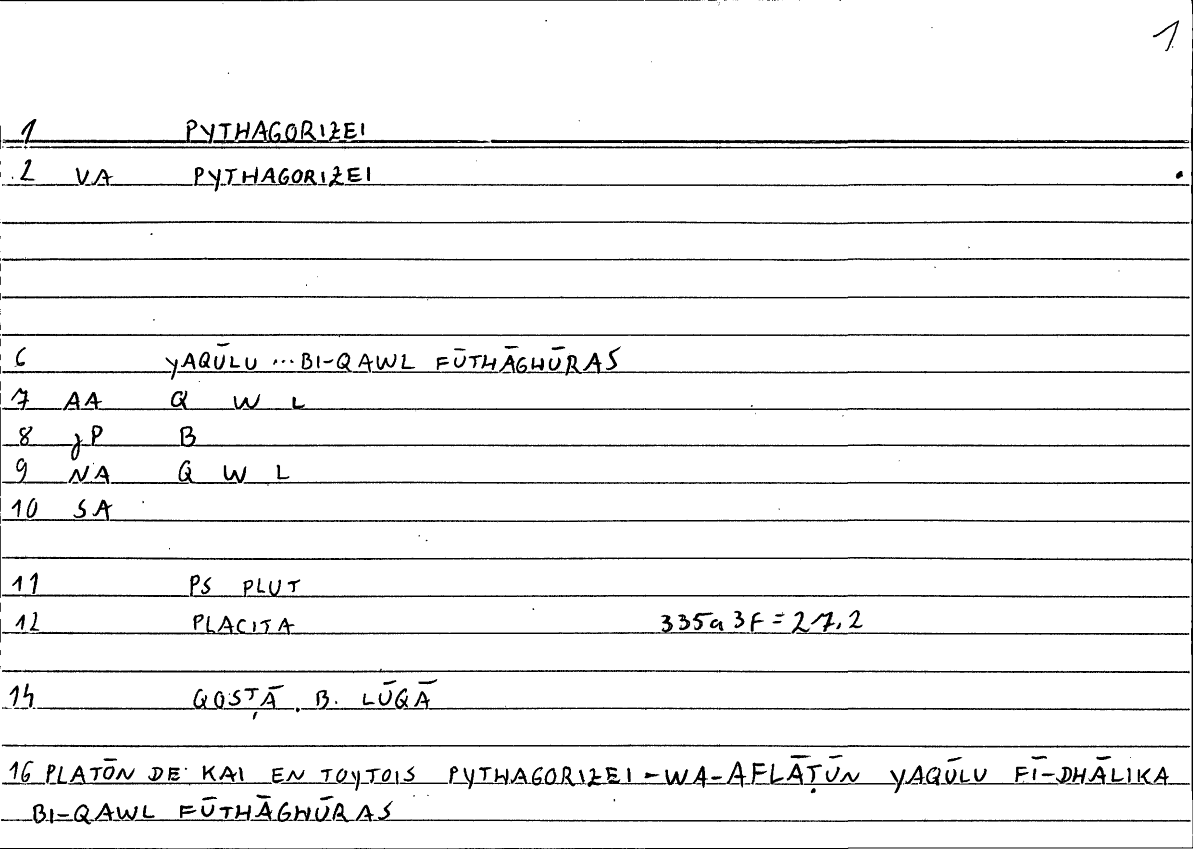 1
1 PYTHAGORIZEI
2 VA PYTHAGORIZEI
6 YAQŪLU ... BI-QAWL FŪTHĀGHŪRAS
7 AA Q W L
8 JP B
9 NA Q W L
10 SA
11 PS PLUT
12 PLACITA 335a 3F = 27.2
14 QOSṬĀ B. LŪQĀ
16 PLATŌN DE KAI EN TOYTOIS PYTHAGORIZEI - WA-AFLĀṬŪN YAQŪLU FĪ-DHĀLIKA
BI-QAWL FŪTHĀGHŪRAS